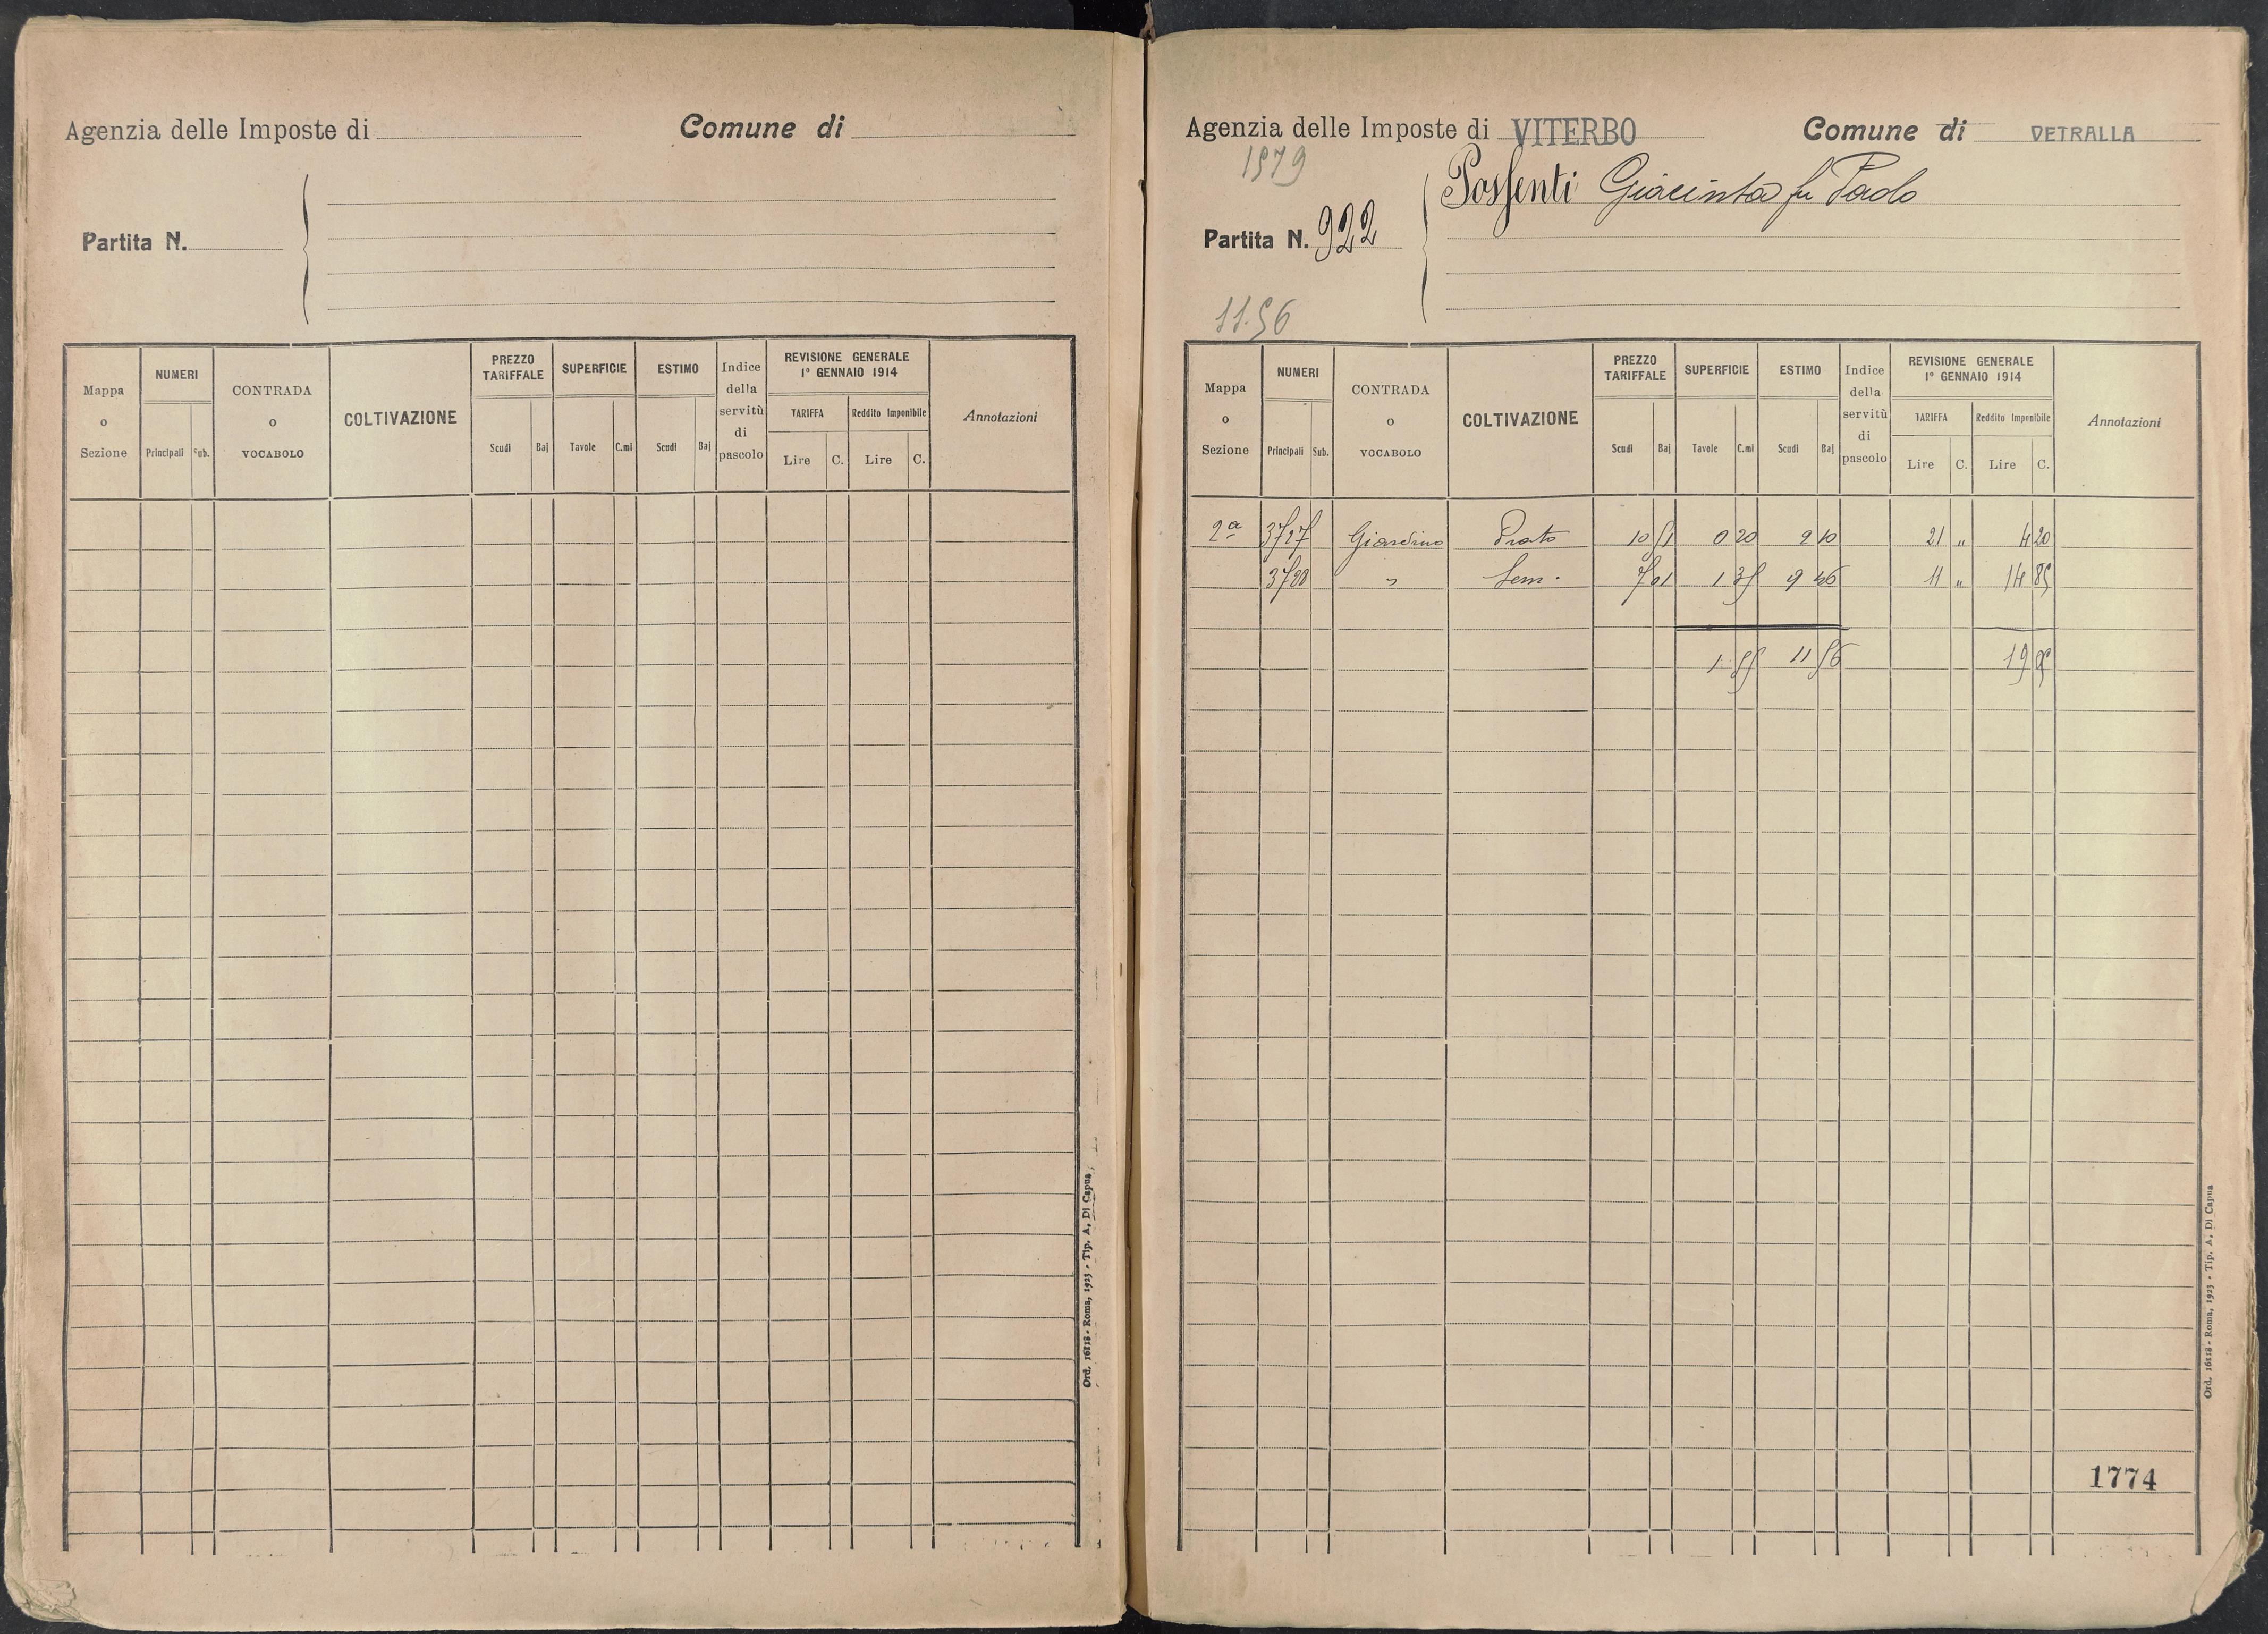 Agenzia delle Imposte di
Comune di
Partita N.
Mappa o Sezione
NUMERI
Principali Sub.
CONTRADA o VOCABOLO
COLTIVAZIONE
PREZZO TARIFFALE
Scudi Baj
SUPERFICIE
Tavole C.mi
ESTIMO
Scudi Baj
Indice della servitù di pascolo
REVISIONE GENERALE
1° GENNAIO 1914
TARIFFA
Lire C.
Reddito Imponibile
Lire C.
Annotazioni
Ord. 16118 - Roma, 1923 - Tip. A. Di Capua
Agenzia delle Imposte di VITERBO
Comune di VETRALLA
1579
Possenti Giacinta fu Paolo
Partita N. 922
11.56
Mappa o Sezione
NUMERI
Principali Sub.
CONTRADA o VOCABOLO
COLTIVAZIONE
PREZZO TARIFFALE
Scudi Baj
SUPERFICIE
Tavole C.mi
ESTIMO
Scudi Baj
Indice della servitù di pascolo
REVISIONE GENERALE
1° GENNAIO 1914
TARIFFA
Lire C.
Reddito Imponibile
Lire C.
Annotazioni
2ª 3727 Giardino Prato 10 51 0 20 2 10 21 " 4 20
3728 " Sem. 7 01 1 35 9 46 11 " 14 85
1 55 11 56 19 05
1774
Ord. 16118 - Roma, 1923 - Tip. A. Di Capua